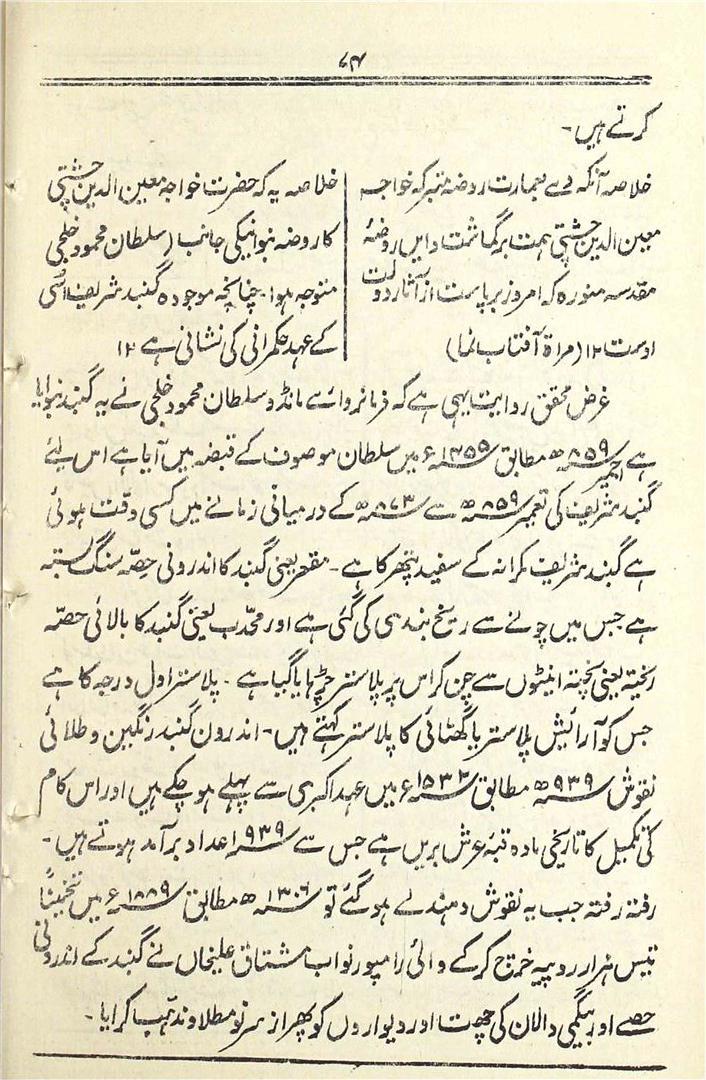 ۷۴
کرتے ہیں۔
خلاصہ آنکہ وے بعمارت روضہ متبرکہ خواجہ
معین الدین چشتی ہمت برگماشت و ایں روضۂ
مقدسہ منورہ کہ امروز برپاست از آثار دولت
اوست ۱۲ (مراۃ آفتاب نما)
خلاصہ یہ کہ حضرت خواجہ معین الدین چشتی
کا روضہ بنوانیکی جانب (سلطان محمود خلجی
متوجہ ہوا۔ چنانچہ موجودہ گنبد شریف اسی
کے عہد حکمرانی کی نشانی ہے ۱۲
غرض محقق روایت یہی ہے کہ فرمانروائے مانڈو سلطان محمود خلجی نے یہ گنبد بنوایا
ہے اجمیر ۸۵۹ھ مطابق ۱۴۵۵ء میں سلطان موصوف کے قبضہ میں آیا ہے اس لئے
گنبد شریف کی تعمیر ۸۵۹ھ سے ۸۷۳ھ کے درمیانی زمانے میں کسی وقت ہوئی
ہے گنبد شریف مکرانہ کے سفید پتھر کا ہے۔ مقعر یعنی گنبد کا اندرونی حصّہ سنگ بستہ
ہے جس میں چونے سے ریخ بندی کی گئی ہے اور محدّب یعنی گنبد کا بالائی حصّہ
ریختہ یعنی پختہ اینٹوں سے چن کر اس پر پلاستر چڑہایا گیا ہے۔ پلاستر اول درجہ کا ہے
جس کو آرائیش پلاستر یا گھٹائی کا پلاستر کہتے ہیں۔ اندرون گنبد رنگین و طلائی
نقوش ۹۳۹ھ مطابق ۱۵۳۲ء میں عہد اکبری سے پہلے ہو چکے ہیں اور اس کام
کی تکمیل کا تاریخی مادہ قبۂ عرش بریں ہے جس سے ۹۳۹ اعداد برآمد ہوتے ہیں۔
رفتہ رفتہ جب یہ نقوش دہندلے ہو گئے تو ۱۳۰۶ھ مطابق ۱۸۸۹ء میں تخمیناً
تیس ہزار روپیہ خرچ کر کے والئی رامپور نواب مشتاق علیخاں نے گنبد کے اندرونی
حصے اور بیگمی دالان کی چھت اور دیواروں کو پھر از سر نو مطلا و ندہب کرایا۔